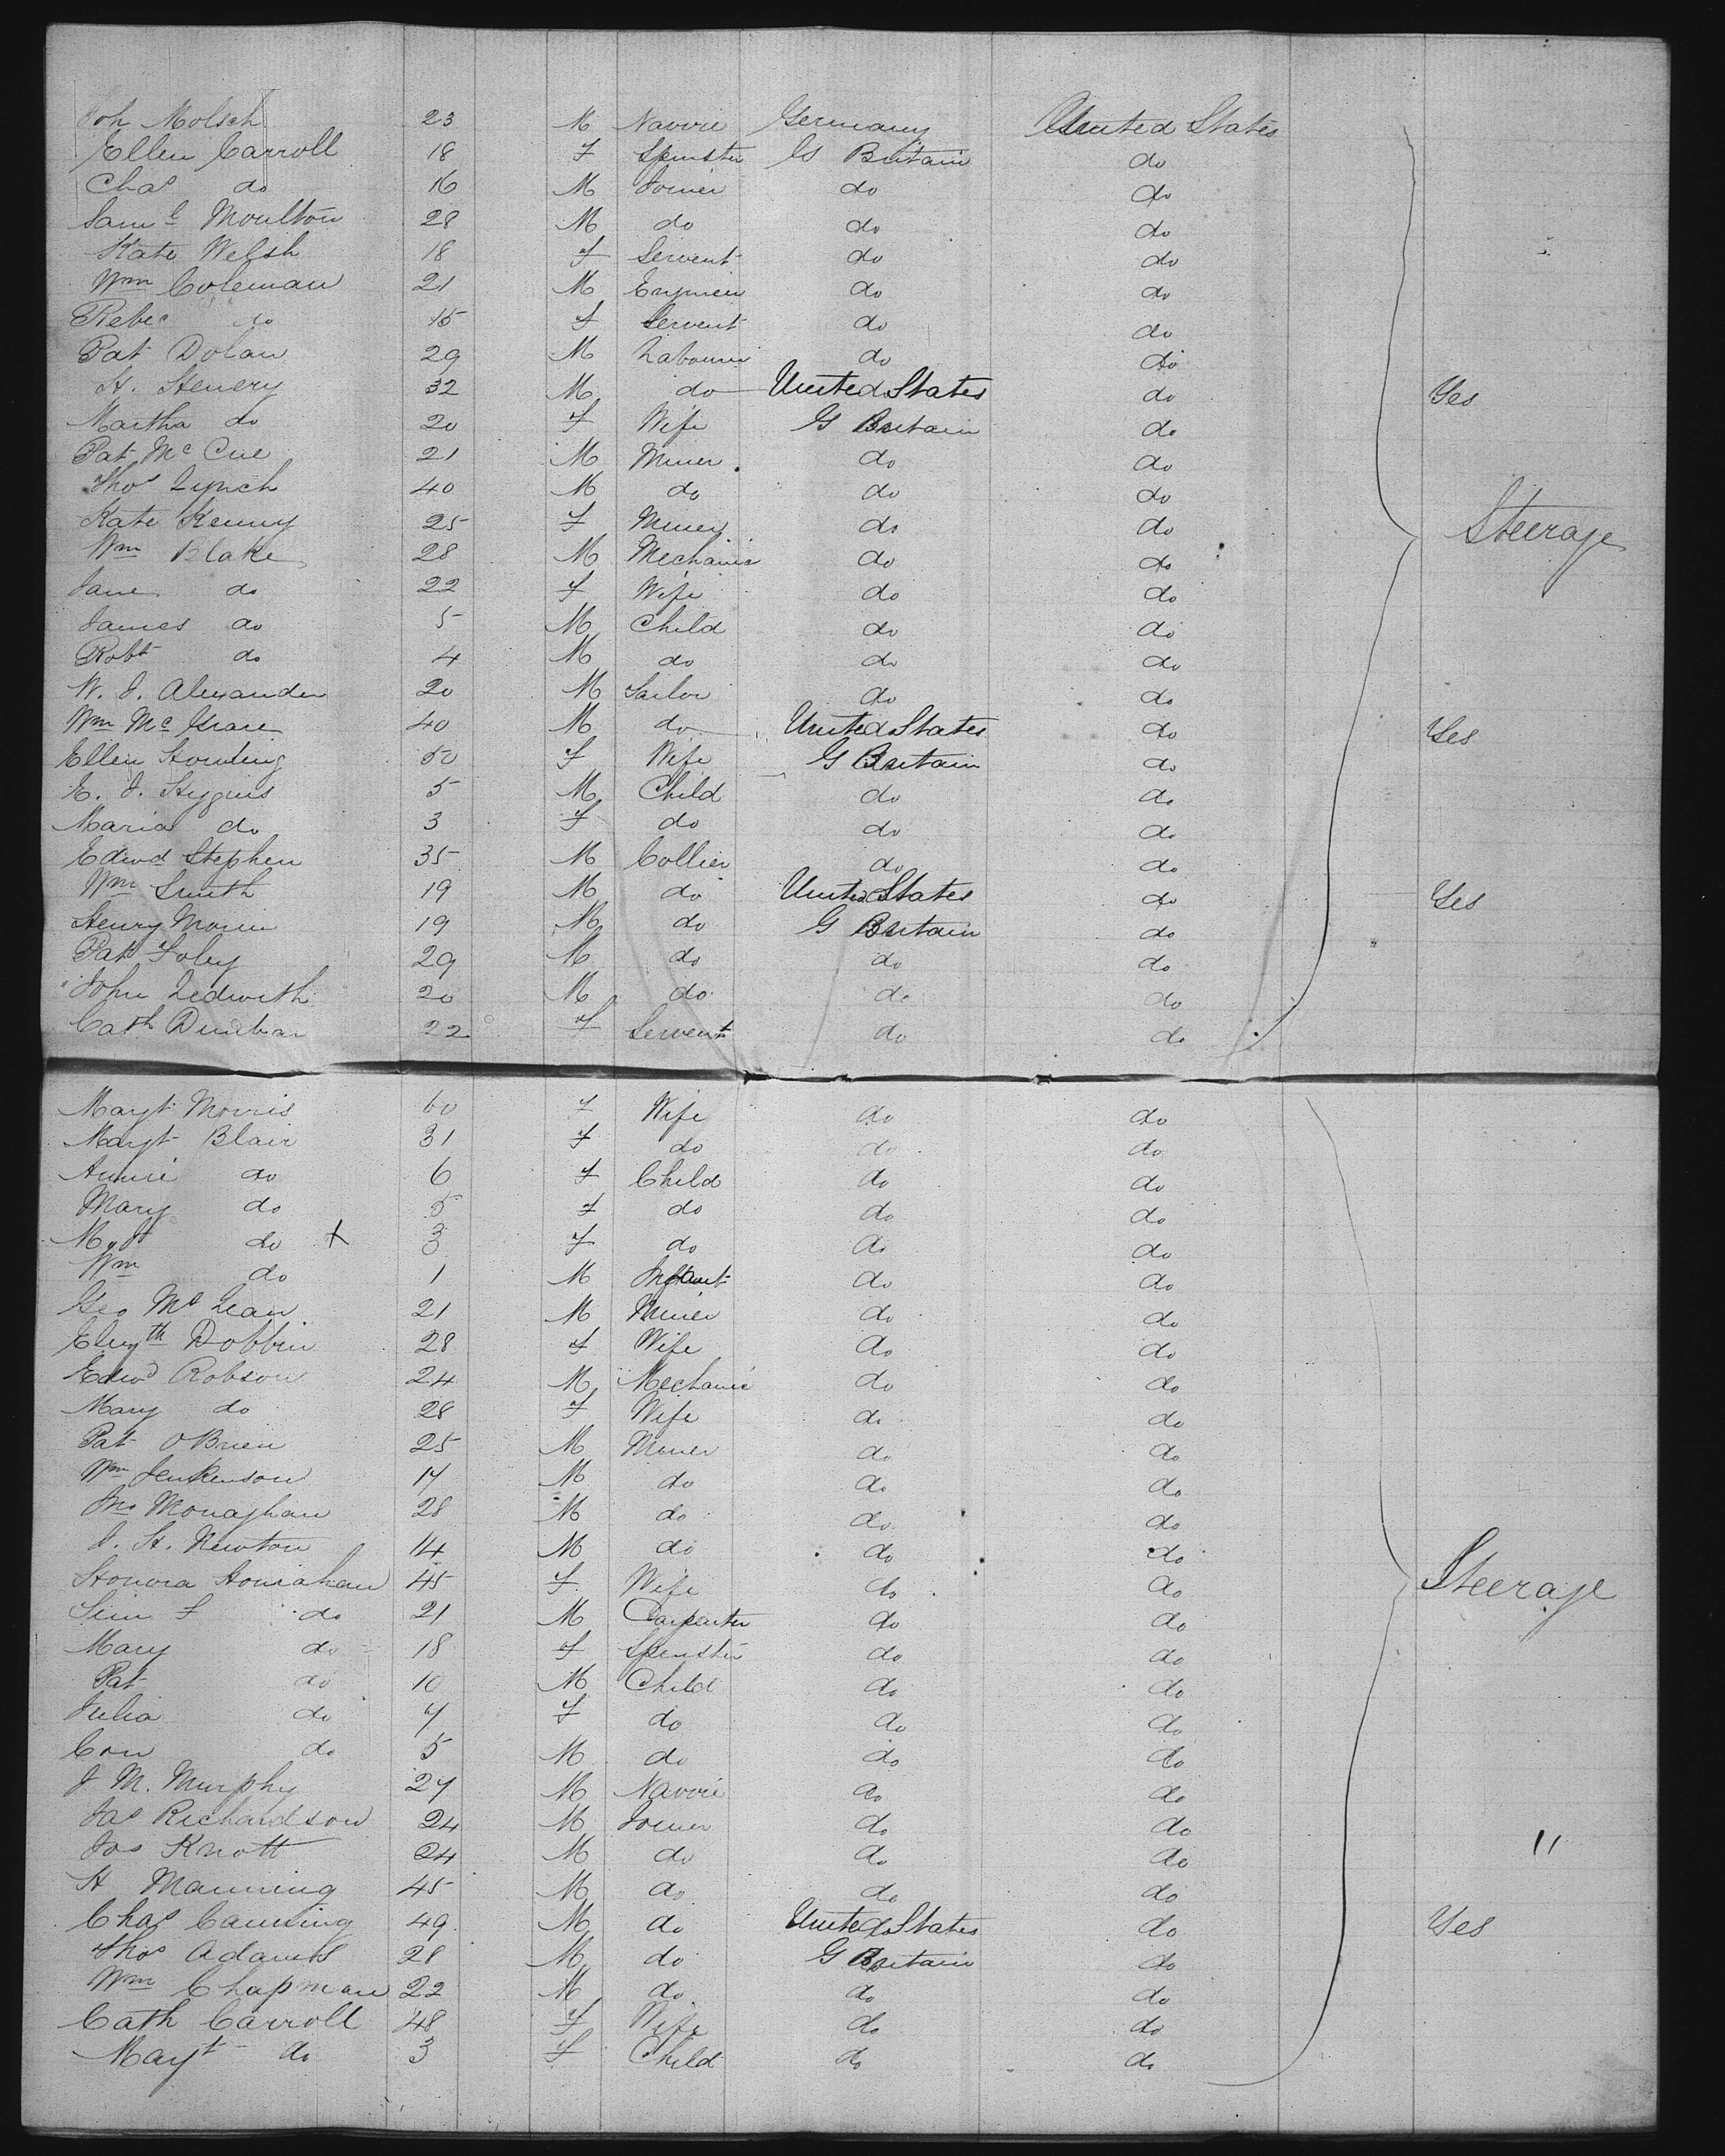 Joh Molsch 23 M Navvie Germany United States
Ellen Carroll 18 F Spinster G Britain do
Chas do 16 M Joiner do do
Saml Moulton 28 M do do do
Kate Welsh 18 F Servent do do
Wm Coleman 21 M Engineer do do
Rebec do 15 F Servent do do
Pat Dolan 29 M Labourer do do
H. Henery 32 M do United States do Yes
Martha do 20 F Wife G Britain do
Pat McCue 21 M Miner do do
Thos Lynch 40 M do do do
Kate Kenny 25 F Miner do do Steerage
Wm Blake 28 M Mechanic do do
Jane do 22 F Wife do do
James do 5 M Child do do
Robt do 4 M do do do
W. J. Alexander 20 M Sailor do do
Wm McGrace 40 M do United States do Yes
Ellen 50 F Wife G Britain do
E. J. Higgins 5 M Child do do
Maria do 3 F do do do
Edwd Stephen 35 M Collier do do
Wm Smith 19 M do United States do Yes
Henry 19 M do G Britain do
Pat Foley 29 M do do do
John Ledwith 20 M do do do
Cath Dunbar 22 F Servent do do
Margt Morris 60 F Wife do do
Margt Blair 31 F do do do
Annie do 6 F Child do do
Mary do 5 F do do do
do X 3 F do do do
Wm do 1 M Infant do do
Geo McLean 21 M Miner do do
Elizth Dobbin 28 F Wife do do
Edwd Robson 24 M Mechanic do do
Mary do 28 F Wife do do
Pat OBrien 25 M Miner do do
Wm Jenkenson 17 M do do do
Jno Monaghan 28 M do do do
J. H. Newton 14 M do do do
Honora Hourahan 45 F Wife do do Steerage
F do 21 M Carpenter do do
Mary do 18 F Spinster do do
Pat do 10 M Child do do
Julia do 7 F do do do
Con do 5 M do do do
J M. Murphy 27 M Navvie do do
Jas Richardson 24 M Joiner do do
Jos Knott 24 M do do do "
H Manning 45 M do do do
Chas Canning 49 M do United States do Yes
Thos Adams 28 M do G Britain do
Wm Chapman 22 M do do do
Cath Carroll 48 F Wife do do
Mayt do 3 F Child do do